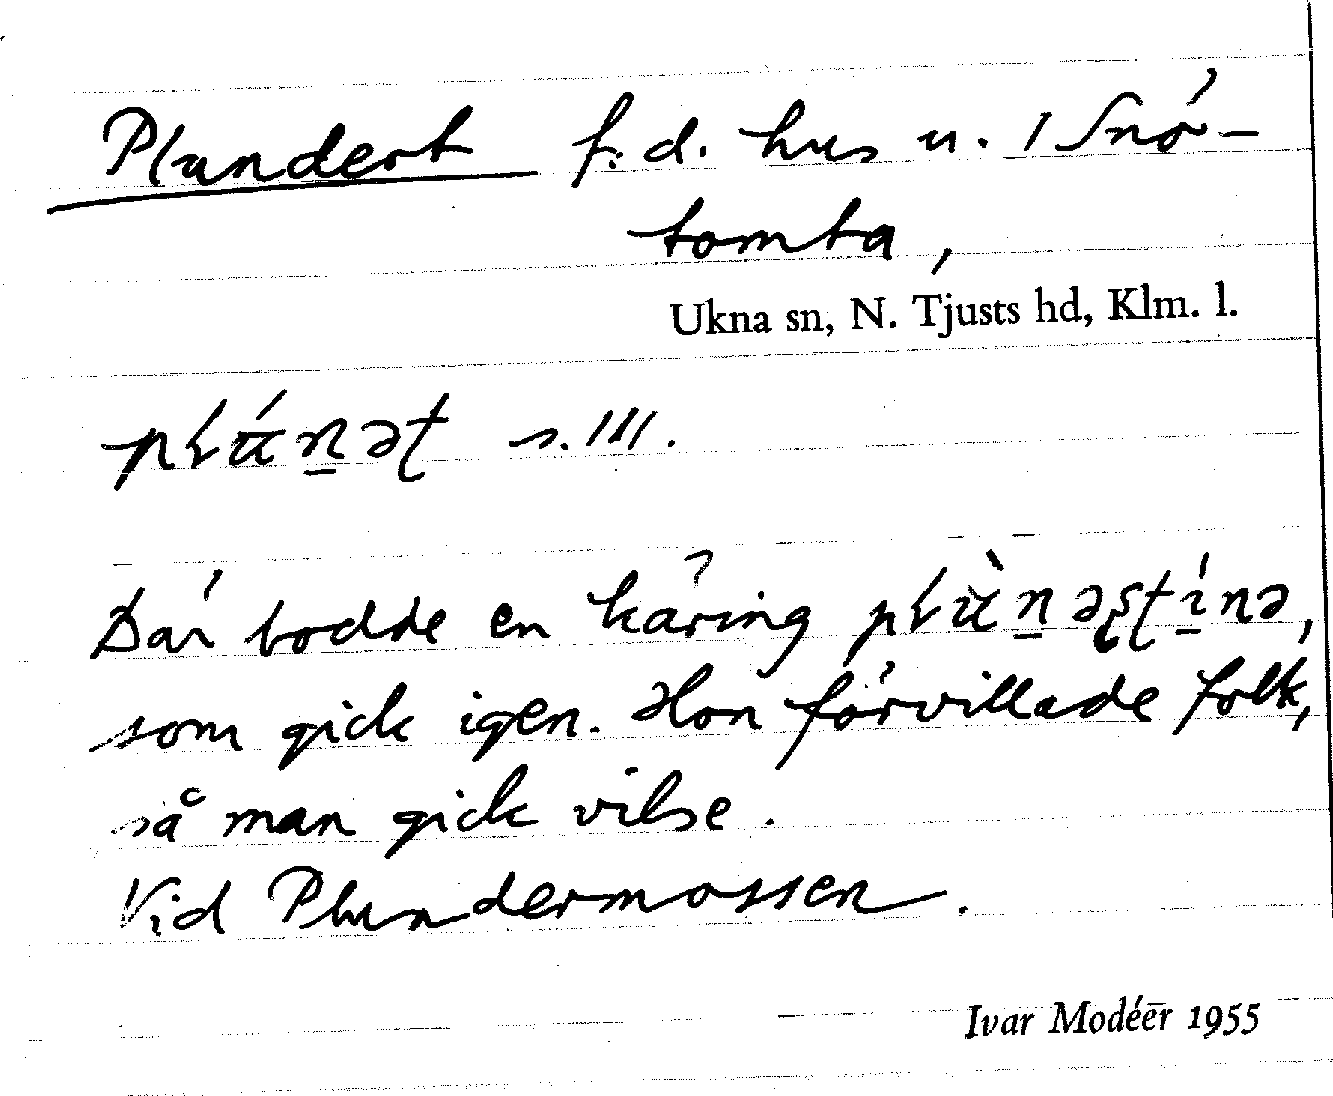 Plundert f.d. hus u. 1 Snö-
tomta,
Ukna sn, N. Tjusts hd, Klm. l.
s. III.
Där bodde en käring
som gick igen. Hon förvillade folk,
så man gick vilse.
Vid Plundermossen.
Ivar Modéer 1955